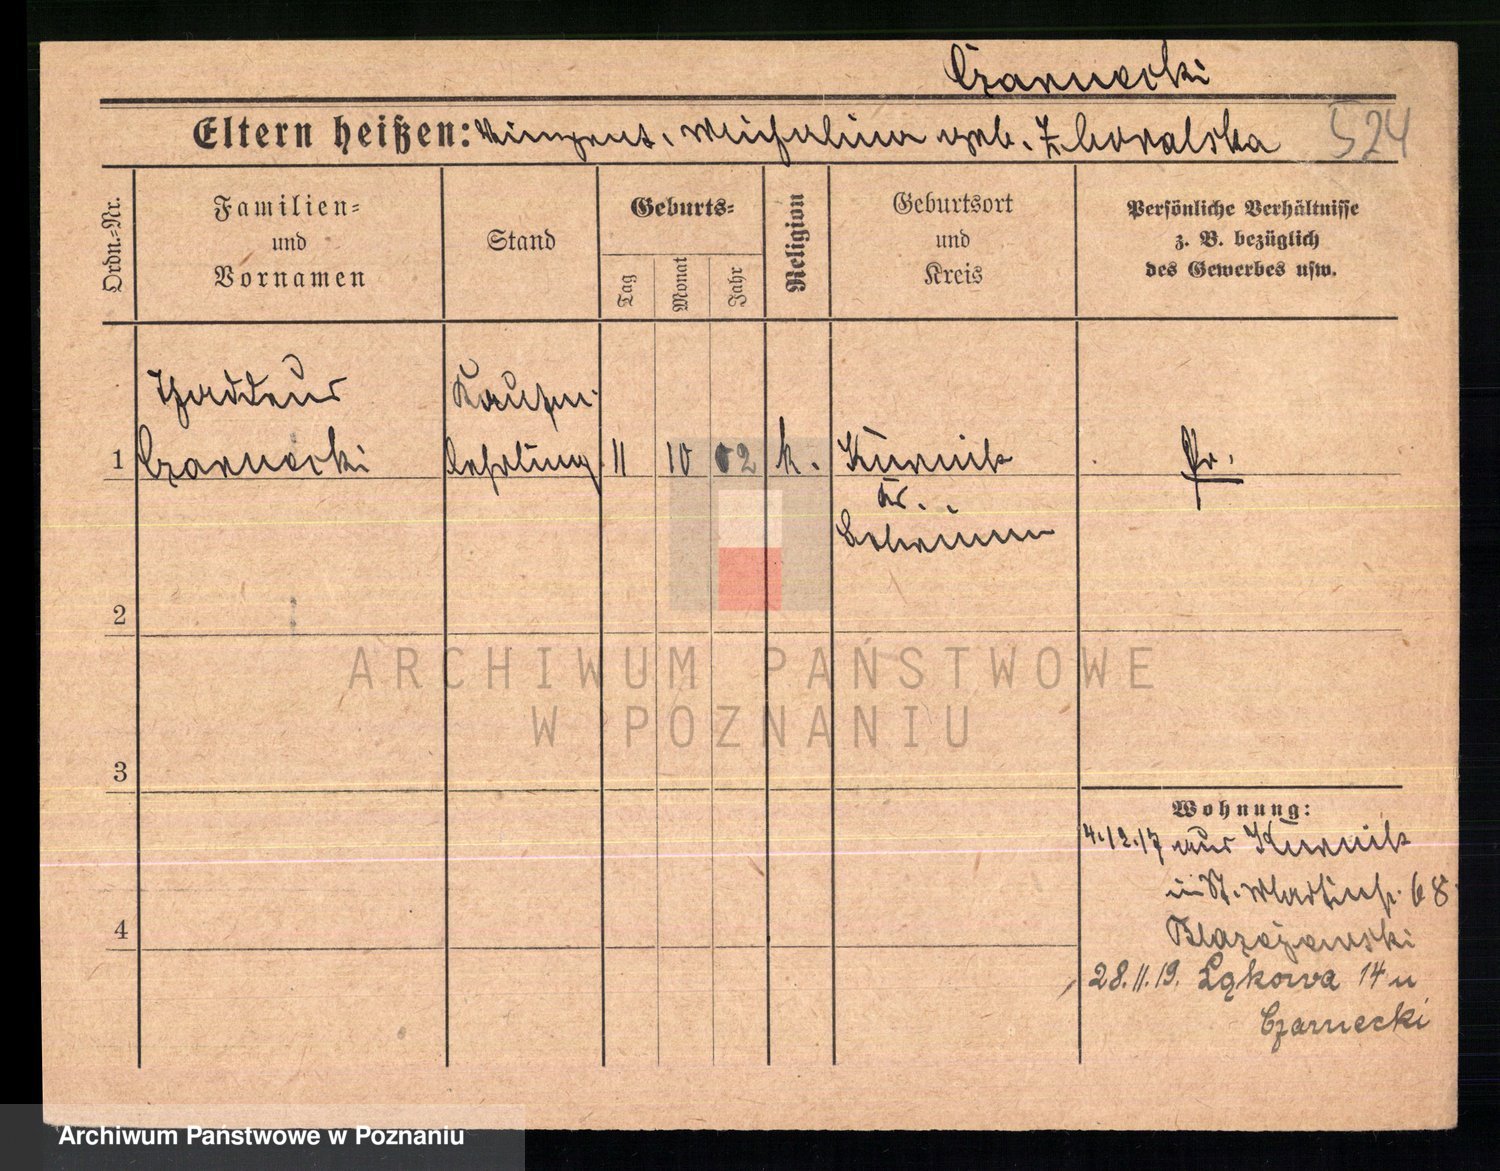 Czarnecki
Eltern heißen: Vinzent, Michalina geb. Zboralska 524
Ordn.-Nr.
Familien-
und
Vornamen
Stand
Geburts-
Tag
Monat
Jahr
Religion
Geburtsort
und
Kreis
Persönliche Verhältnisse
z. B. bezüglich
des Gewerbes usw.
Thaddeus Kaufm.
1 Czarnecki lehrling 11 10 02 k. Kurnik Pr.
Kr.
Schrimm
2
ARCHIWUM PAŃSTWOWE
W POZNANIU
3
Wohnung:
4.12.17 aus Kurnik
in St. Martinstr. 68
Błażejewski
4
28.11.19. Łąkowa 14 u
Czarnecki
Archiwum Państwowe w Poznaniu